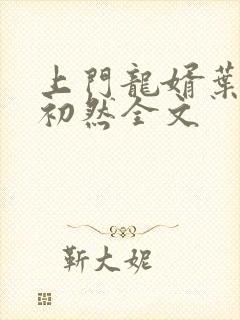 上門龍婿葉
初然全文
靳大妮